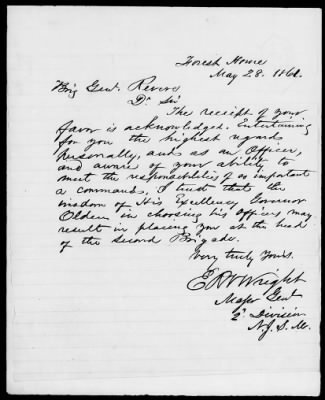 Forest Home
May 28. 1861.
Brig Genl. Revere
Dr Sir
The receipt of your
favor is acknowledged. Entertaining
for you the highest regards
personally, and as an Officer,
and aware of your ability to
meet the responsibilities of so important
a command, I trust that the
wisdom of His Excellency Governor
Olden in choosing his Officers may
result in placing you at the head
of the Second Brigade.
Very truly Yours.
Wright
Major Genl
2d Division
N.J.S.M.